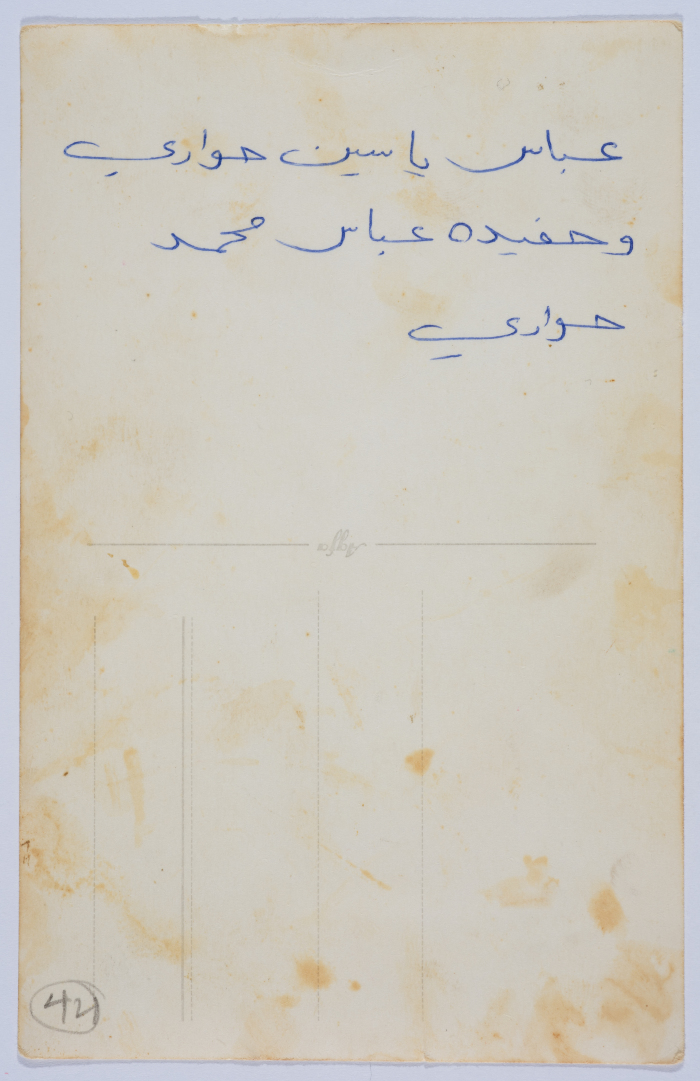 عباس ياسين حواري
وحفيده عباس محمد
حواري
Agfa
42